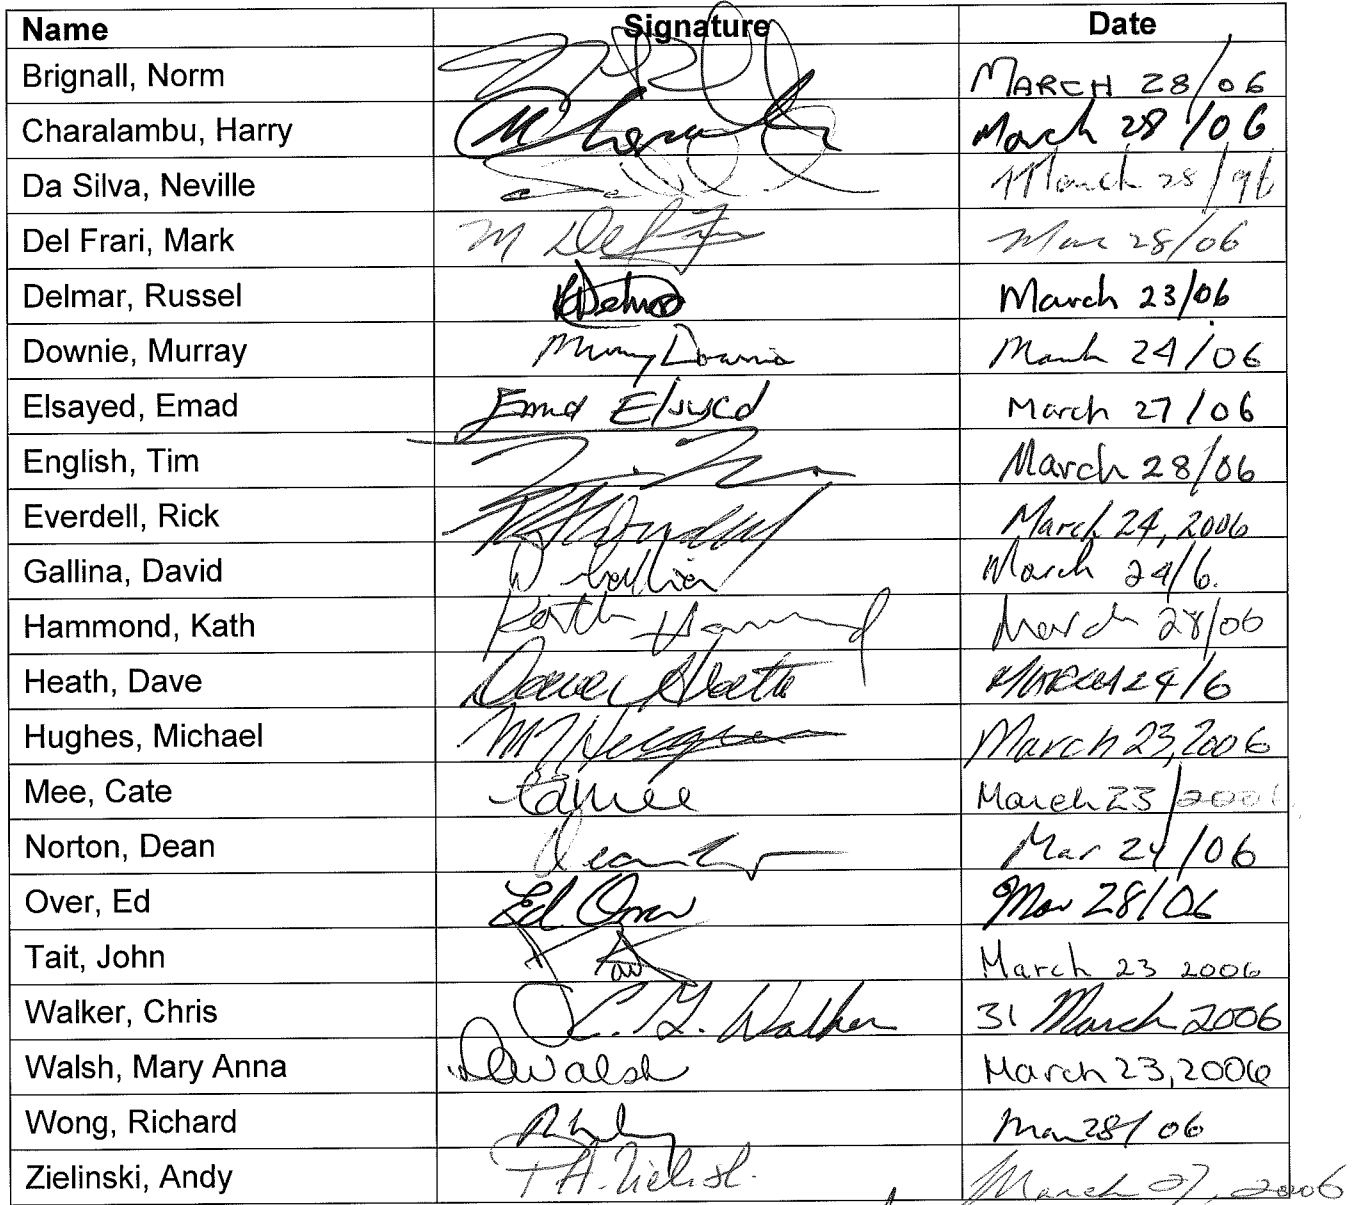 Name Signature Date
Brignall, Norm MARCH 28/06
Charalambu, Harry March 28/06
Da Silva, Neville March 28/96
Del Frari, Mark M Del Fra Mar 28/06
Delmar, Russel March 23/06
Downie, Murray Murray Downie March 24/06
Elsayed, Emad Emad Elsayed March 27/06
English, Tim March 28/06
Everdell, Rick March 24, 2006
Gallina, David March 24/6.
Hammond, Kath Kath Hammond March 28/06
Heath, Dave Dave Heath MARCH 24/6
Hughes, Michael M Hughes March 23, 2006
Mee, Cate March 23/2006
Norton, Dean Mar 24/06
Over, Ed Ed Over Mar 28/06
Tait, John March 23 2006
Walker, Chris C. G. Walker 31 March 2006
Walsh, Mary Anna Walsh March 23, 2006
Wong, Richard Mar 28/06
Zielinski, Andy March 27, 2006